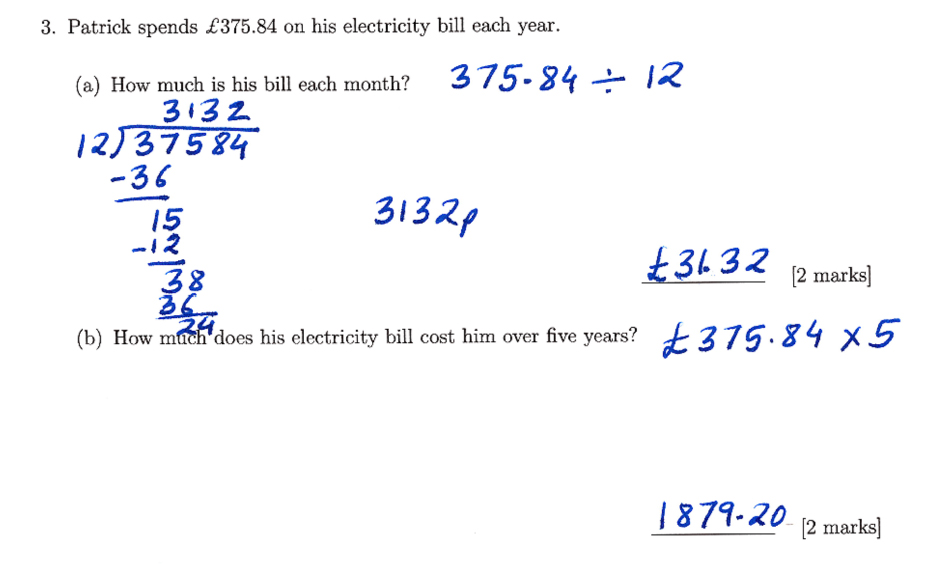 3. Patrick spends £375.84 on his electricity bill each year.
(a) How much is his bill each month? 375.84 ÷ 12
3132
12)37584
-36
15
-12
38
36
24
3132p
£31.32 [2 marks]
(b) How much does his electricity bill cost him over five years? £375.84 × 5
1879.20 [2 marks]